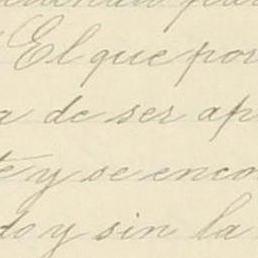 El que por
a de ser ap
te y se enco
do y sin la